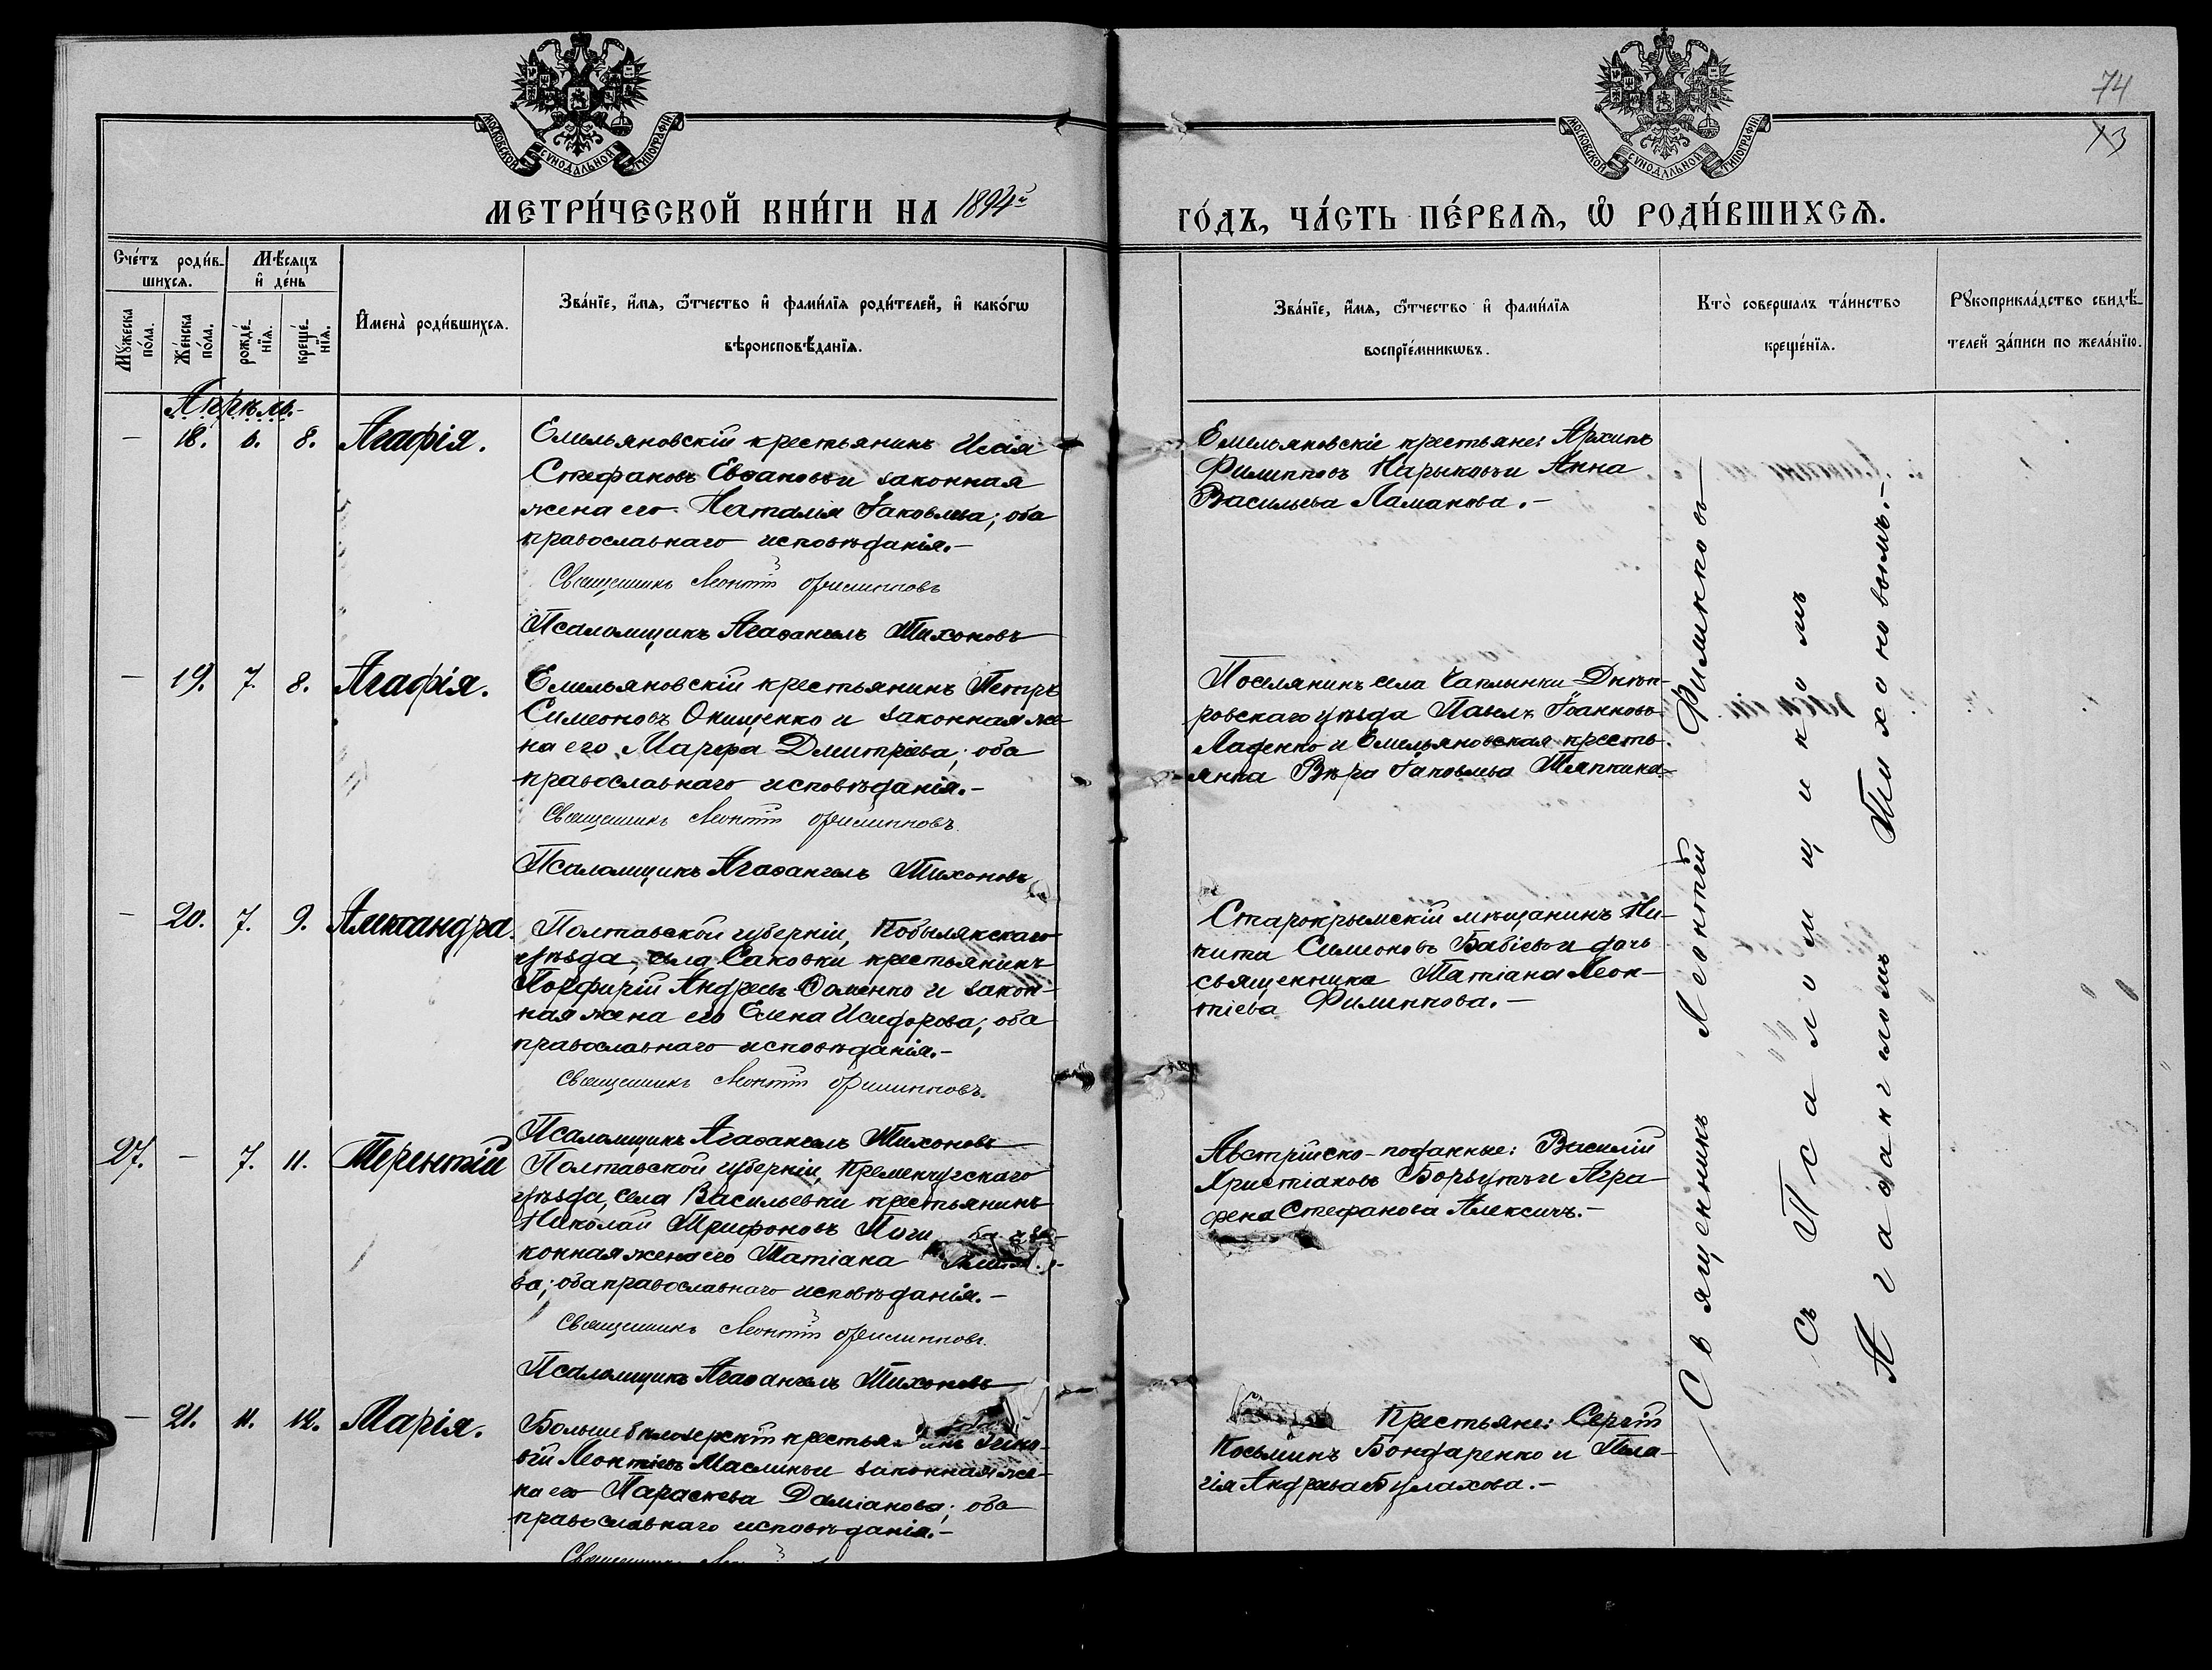 74
МОСКОВСКОЙ СѴНОДАЛЬНОЙ ТИПОГРАФІИ
МОСКОВСКОЙ СѴНОДАЛЬНОЙ ТИПОГРАФІИ
МЕТРИ́ЧЕСКОЙ КНИ́ГИ НА 1894й
ГО́ДЪ, ЧА́СТЬ ПЕ́РВАѦ, Ѡ҆ РОДИ́ВШИХСѦ.
Сче́тъ роди́в-
шихсѧ.
Мѣ́сѧцъ
и҆ де́нь
Мꙋ́жеска
по́ла.
Же́нска
по́ла.
рожде́-
нїѧ.
креще́-
нїѧ.
И҆мена̀ роди́вшихсѧ.
Зва́нїе, и҆́мѧ, ѻ҆́тчество и҆ фами́лїѧ роди́телей, и҆ како́гѡ
вѣроисповѣ́данїѧ.
Зва́нїе, и҆́мѧ, ѻ҆́тчество и҆ фами́лїѧ
воспрїе́мникѡвъ.
Кто̀ совершалъ та́инство
креще́нїѧ.
Рꙋкоприкла́дство свидѣ́-
телей за́писи по жела́нїю.
Апрѣль.-
— 18. 6. 8. Агафія.
Емельяновскій крестьянинъ Исаія
Стефановъ Евѳановъ и законная
жена его Наталья Іаковлева; оба
православнаго исповѣданія.-
Священникъ Леонтій Филипповъ
Псаломщикъ Агаѳангелъ Тихоновъ
Емельяновскіе крестьяне: Архипъ
Филипповъ Нарыковъ и Анна
Васильева Ламанова.-
— 19. 7. 8. Агафія.
Емельяновскій крестьянинъ Петръ
Симеоновъ Онищенко и законная же-
на его Марфа Димитріева; оба
православнаго исповѣданія.-
Священникъ Леонтій Филипповъ.
Псаломщикъ Агаѳангелъ Тихоновъ
Поселянинъ села Чаплынки Днѣп-
ровскаго уѣзда Павелъ Іоанновъ
Ладенко и Емельяновская кресть-
янка Вѣра Іаковлева Тяпкина.-
— 20. 7. 9. Александра.
Полтавской губерніи, Кобылякскаго
уѣзда, села Саковки крестьянинъ
Порфирій Андреевъ Ѳоменко и закон-
ная жена его Елена Исидорова; оба
православнаго исповѣданія.-
Священникъ Леонтій Филипповъ.
Псаломщикъ Агаѳангелъ Тихоновъ
Старокрымскій мѣщанинъ Ни-
кита Симеоновъ Бабіевъ и дочь
священника Татіана Леон-
тіева Филиппова.-
27. — 7. 11. Терентій
Полтавской губерніи, Кременчугскаго
уѣзда, села Васильевки крестьянинъ
Николай Трифоновъ
конная жена его Татіана
ва; оба православнаго исповѣданія.-
Священникъ Леонтій Филипповъ.
Псаломщикъ Агаѳангелъ Тихоновъ
Австрійско-подданные: Василій
Христіановъ и Агра
фена Стефанова Алексичъ.-
— 21. 11. 12. Марія.
Большебѣлозерскій крестьянинъ
Леонтіевъ Маслинъ и законная же-
на его Параскева Даміанова; оба
православнаго исповѣданія.-
Священникъ
Крестьяне: Сергій
Косьминъ Бондаренко и Пела-
гія Андреева Булахова.-
Священникъ Леонтій Филипповъ
съ Псаломщикомъ
Агаѳангеломъ Тихоновымъ.-